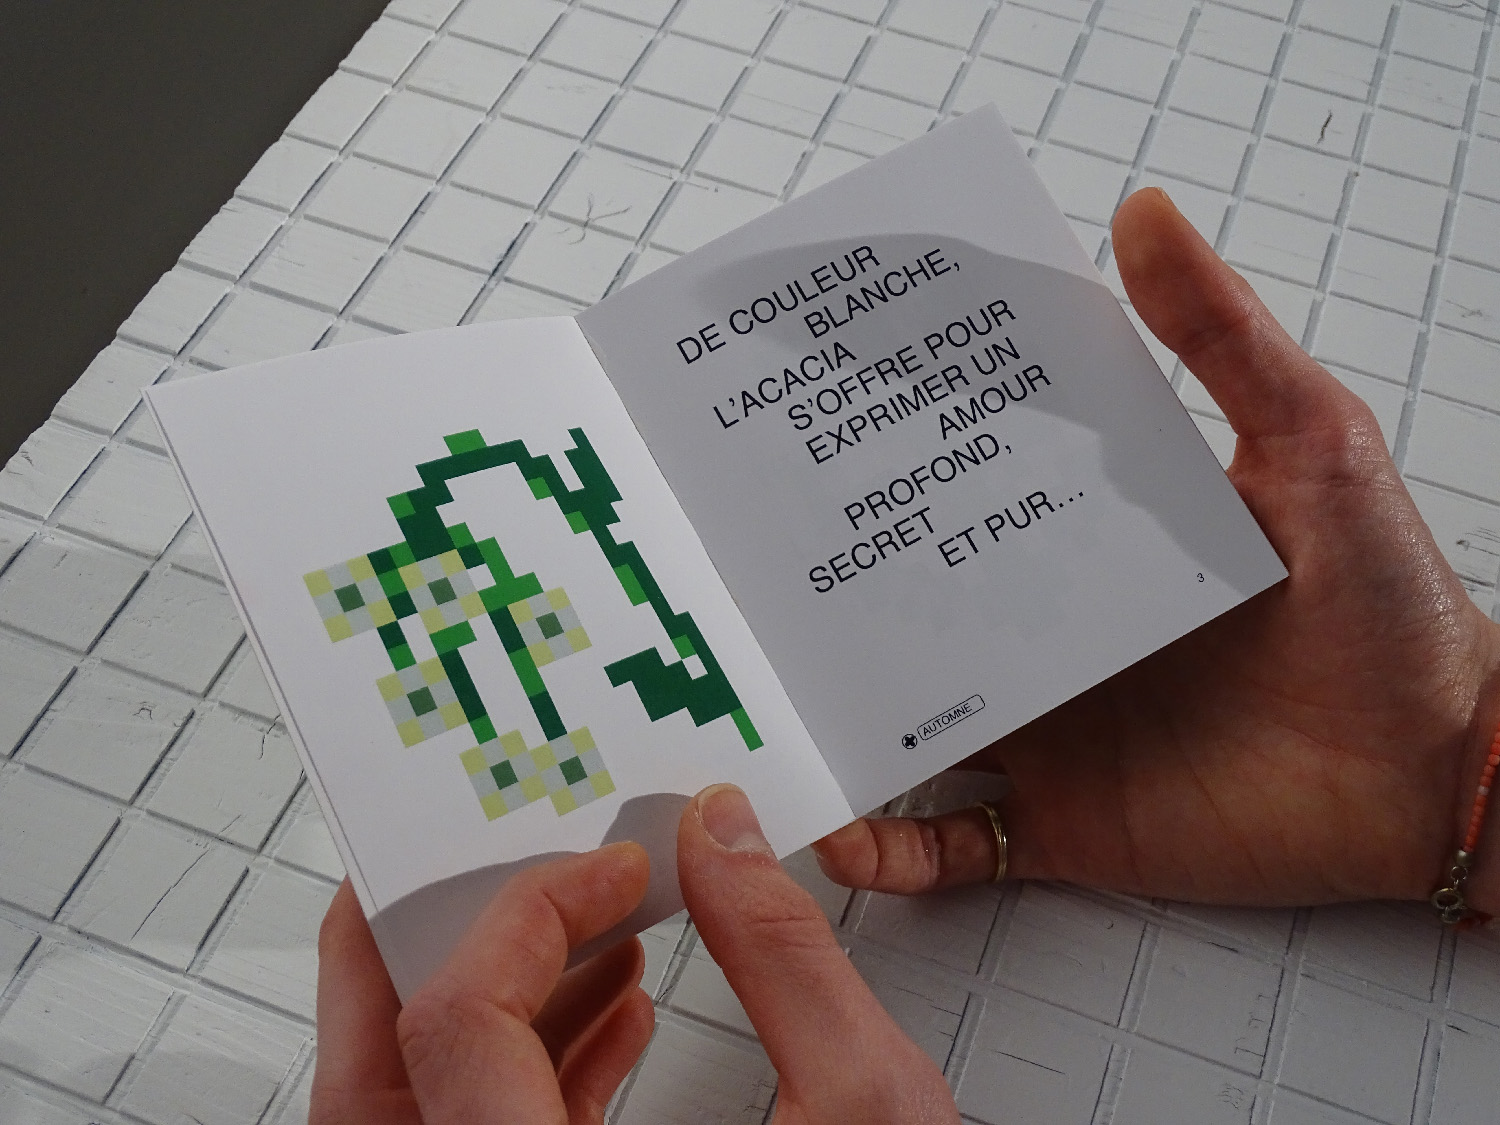 DE COULEUR
BLANCHE,
L'ACACIA
S'OFFRE POUR
EXPRIMER UN
AMOUR
PROFOND,
SECRET
ET PUR...
3
AUTOMNE